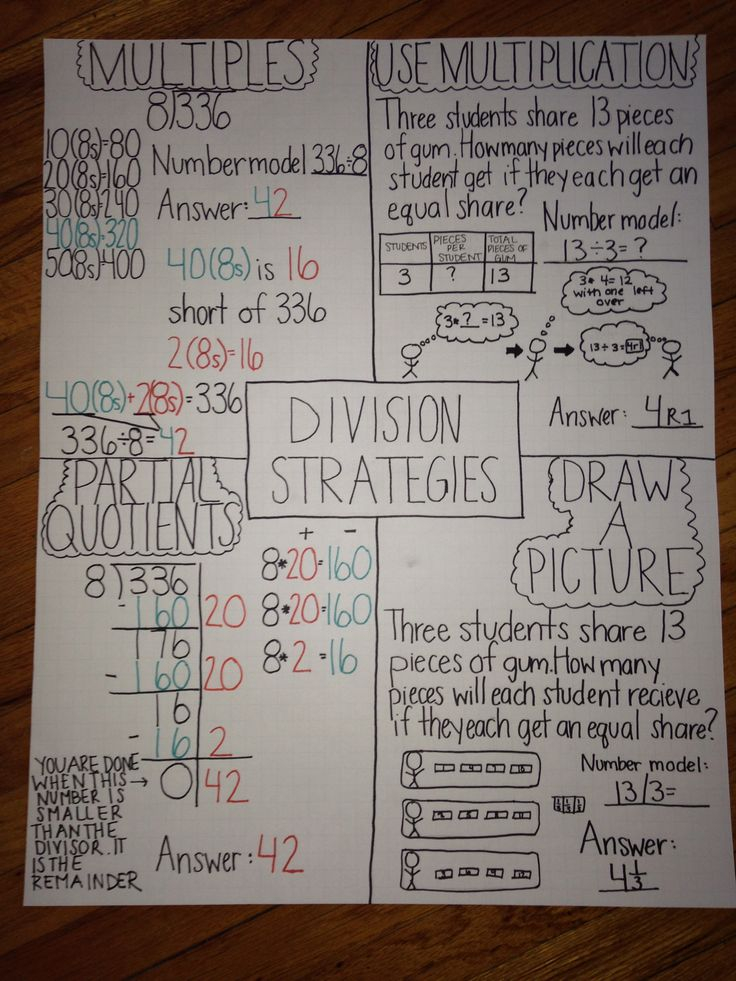 MULTIPLES
8)336
10(8s)=80
20(8s)=160
30(8s)=240
40(8s)=320
50(8s)=400
Number model 336÷8
Answer: 42
40(8s) is 16
short of 336
2(8s)=16
40(8s)+2(8s)=336
336÷8=42
USE MULTIPLICATION
Three students share 13 pieces
of gum. How many pieces will each
student get if they each get an
equal share?
Number model:
13÷3=?
STUDENTS PIECES PER STUDENT TOTAL PIECES OF GUM
3 ? 13
3*?=13
3*4=12
with one left
over
13÷3=4r1
Answer: 4R1
DIVISION
STRATEGIES
PARTIAL
QUOTIENTS
8)336
-160 20
176
-160 20
16
-16 2
0 42
+ -
8*20=160
8*20=160
8*2=16
YOU ARE DONE
WHEN THIS →
NUMBER IS
SMALLER
THAN THE
DIVISOR. IT
IS THE
REMAINDER
Answer: 42
DRAW
A
PICTURE
Three students share 13
pieces of gum. How many
pieces will each student recieve
if they each get an equal share?
Number model:
13/3=
1/3 1/3 1/3
Answer:
4 1/3